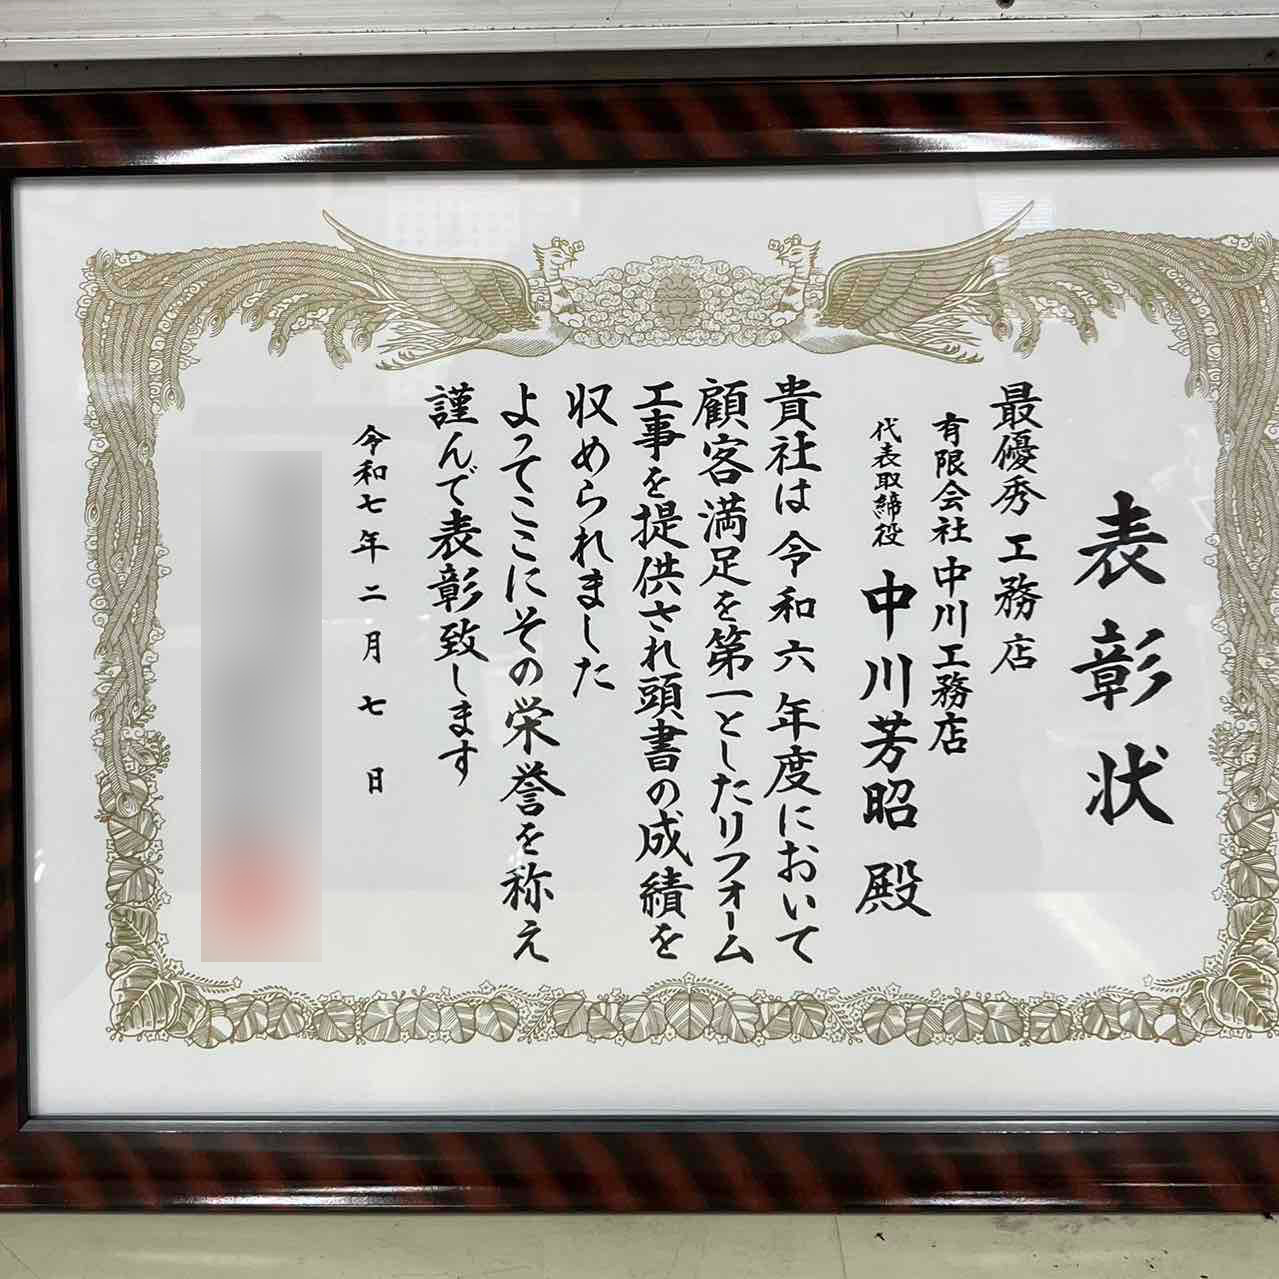 表彰状
最優秀 工務店
有限会社 中川工務店
代表取締役 中川芳昭 殿
貴社は令和六年度において
顧客満足を第一としたリフォーム
工事を提供され頭書の成績を
収められました
よってここにその栄誉を称え
謹んで表彰致します
令和七年二月七日